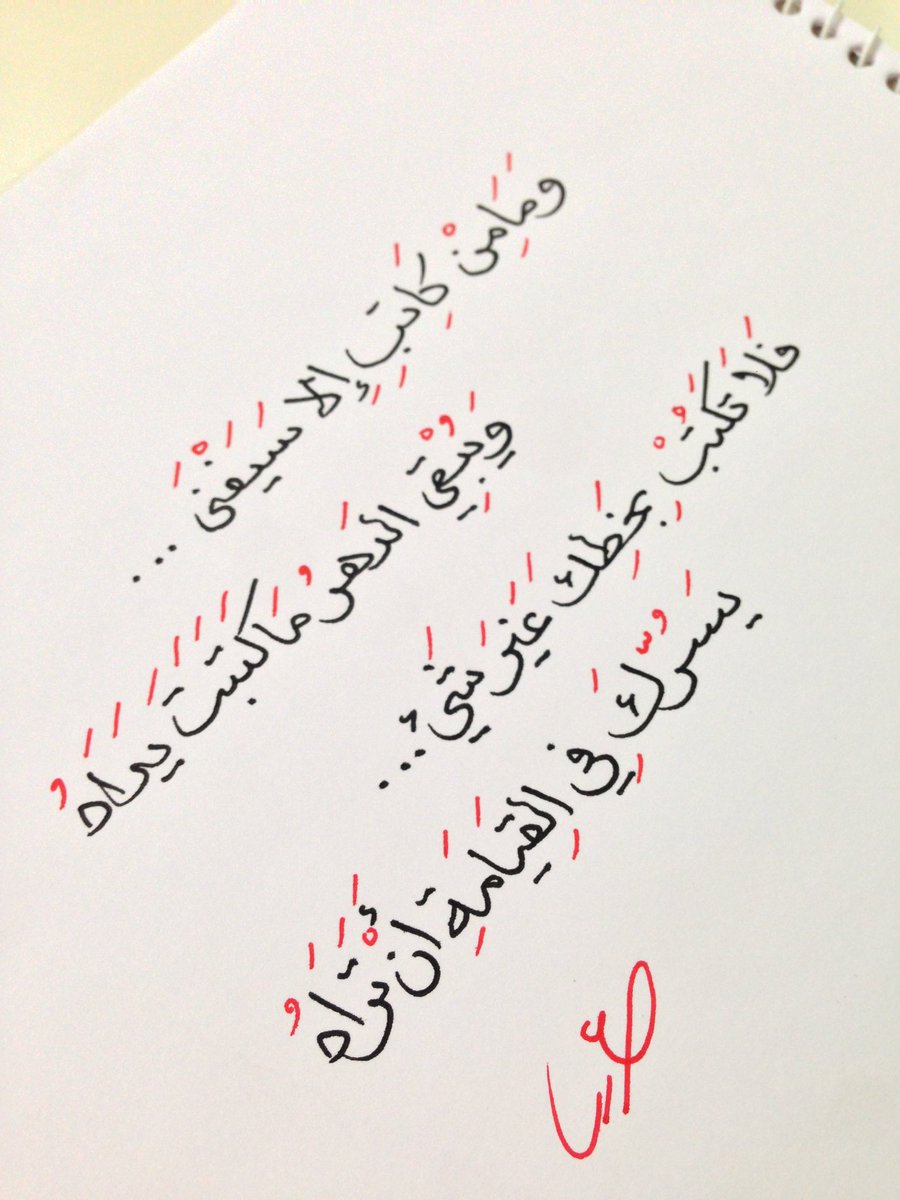 وَمَا مِنْ كَاتِبٍ إلا سَيَفْنَى ...
وَيُبْقِي الدَهرُ مَا كَتَبَت يَدَاهُ
فَلَا تَكتُبْ بِخَطِكَ غَيرَ شَيءٍ ...
يَسُرُّكَ فِي القِيَامَةِ أَنْ تَرَاهُ